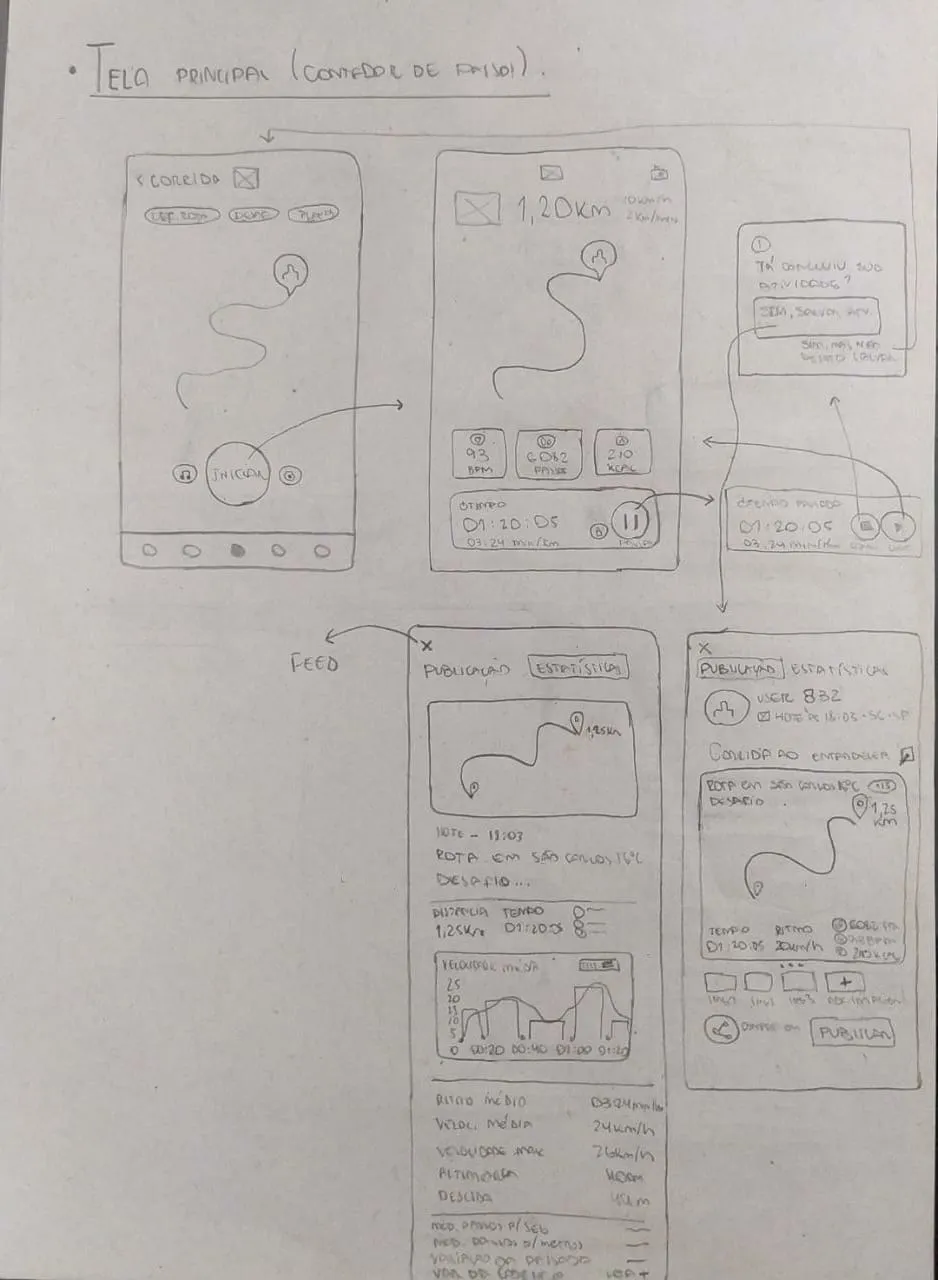 • TELA PRINCIPAL (CONTADOR DE PASSOS).
< CORRIDA
INICIAR
1,20KM
10km/h
2 km/min
93
BPM
6082
PASSOS
210
KCAL
TEMPO
01:20:05
03:24 min/km
PAUSAR
TÁ CONCLUIU SUA
ATIVIDADE?
SIM, SALVAR ATV.
SIM, MAS NÃO
DESEJO SALVAR
TEMPO PAUSADO
01:20:05
03:24 min/km
FEED
X
PUBLICAÇÃO ESTATÍSTICAS
1,25km
HOJE - 18:03
ROTA EM SÃO CARLOS 16°C
DESAFIO...
DISTÂNCIA TEMPO
1,25Km 01:20:05
VELOCIDADE MÉDIA
25
20
15
10
5
0 00:20 00:40 01:00 01:20
RITMO MÉDIO 03:24min/km
VELOC. MÉDIA 24km/h
VELOCIDADE MAX 26km/h
ALTIMETRIA
DESCIDA
MED. PASSOS P/SEG
MED. PASSOS P/METROS
VARIAÇÃO DA PASSADA
X
PUBLICAÇÃO ESTATÍSTICAS
USER 832
HOJE ÀS 18:03 - SC - SP
CORRIDA AO ENTARDECER
ROTA EM SÃO CARLOS 16°C
DESAFIO
1,25
KM
TEMPO RITMO
01:20:05 20km/h
210KCAL
IMG1 IMG2 IMG3
PUBLICAR